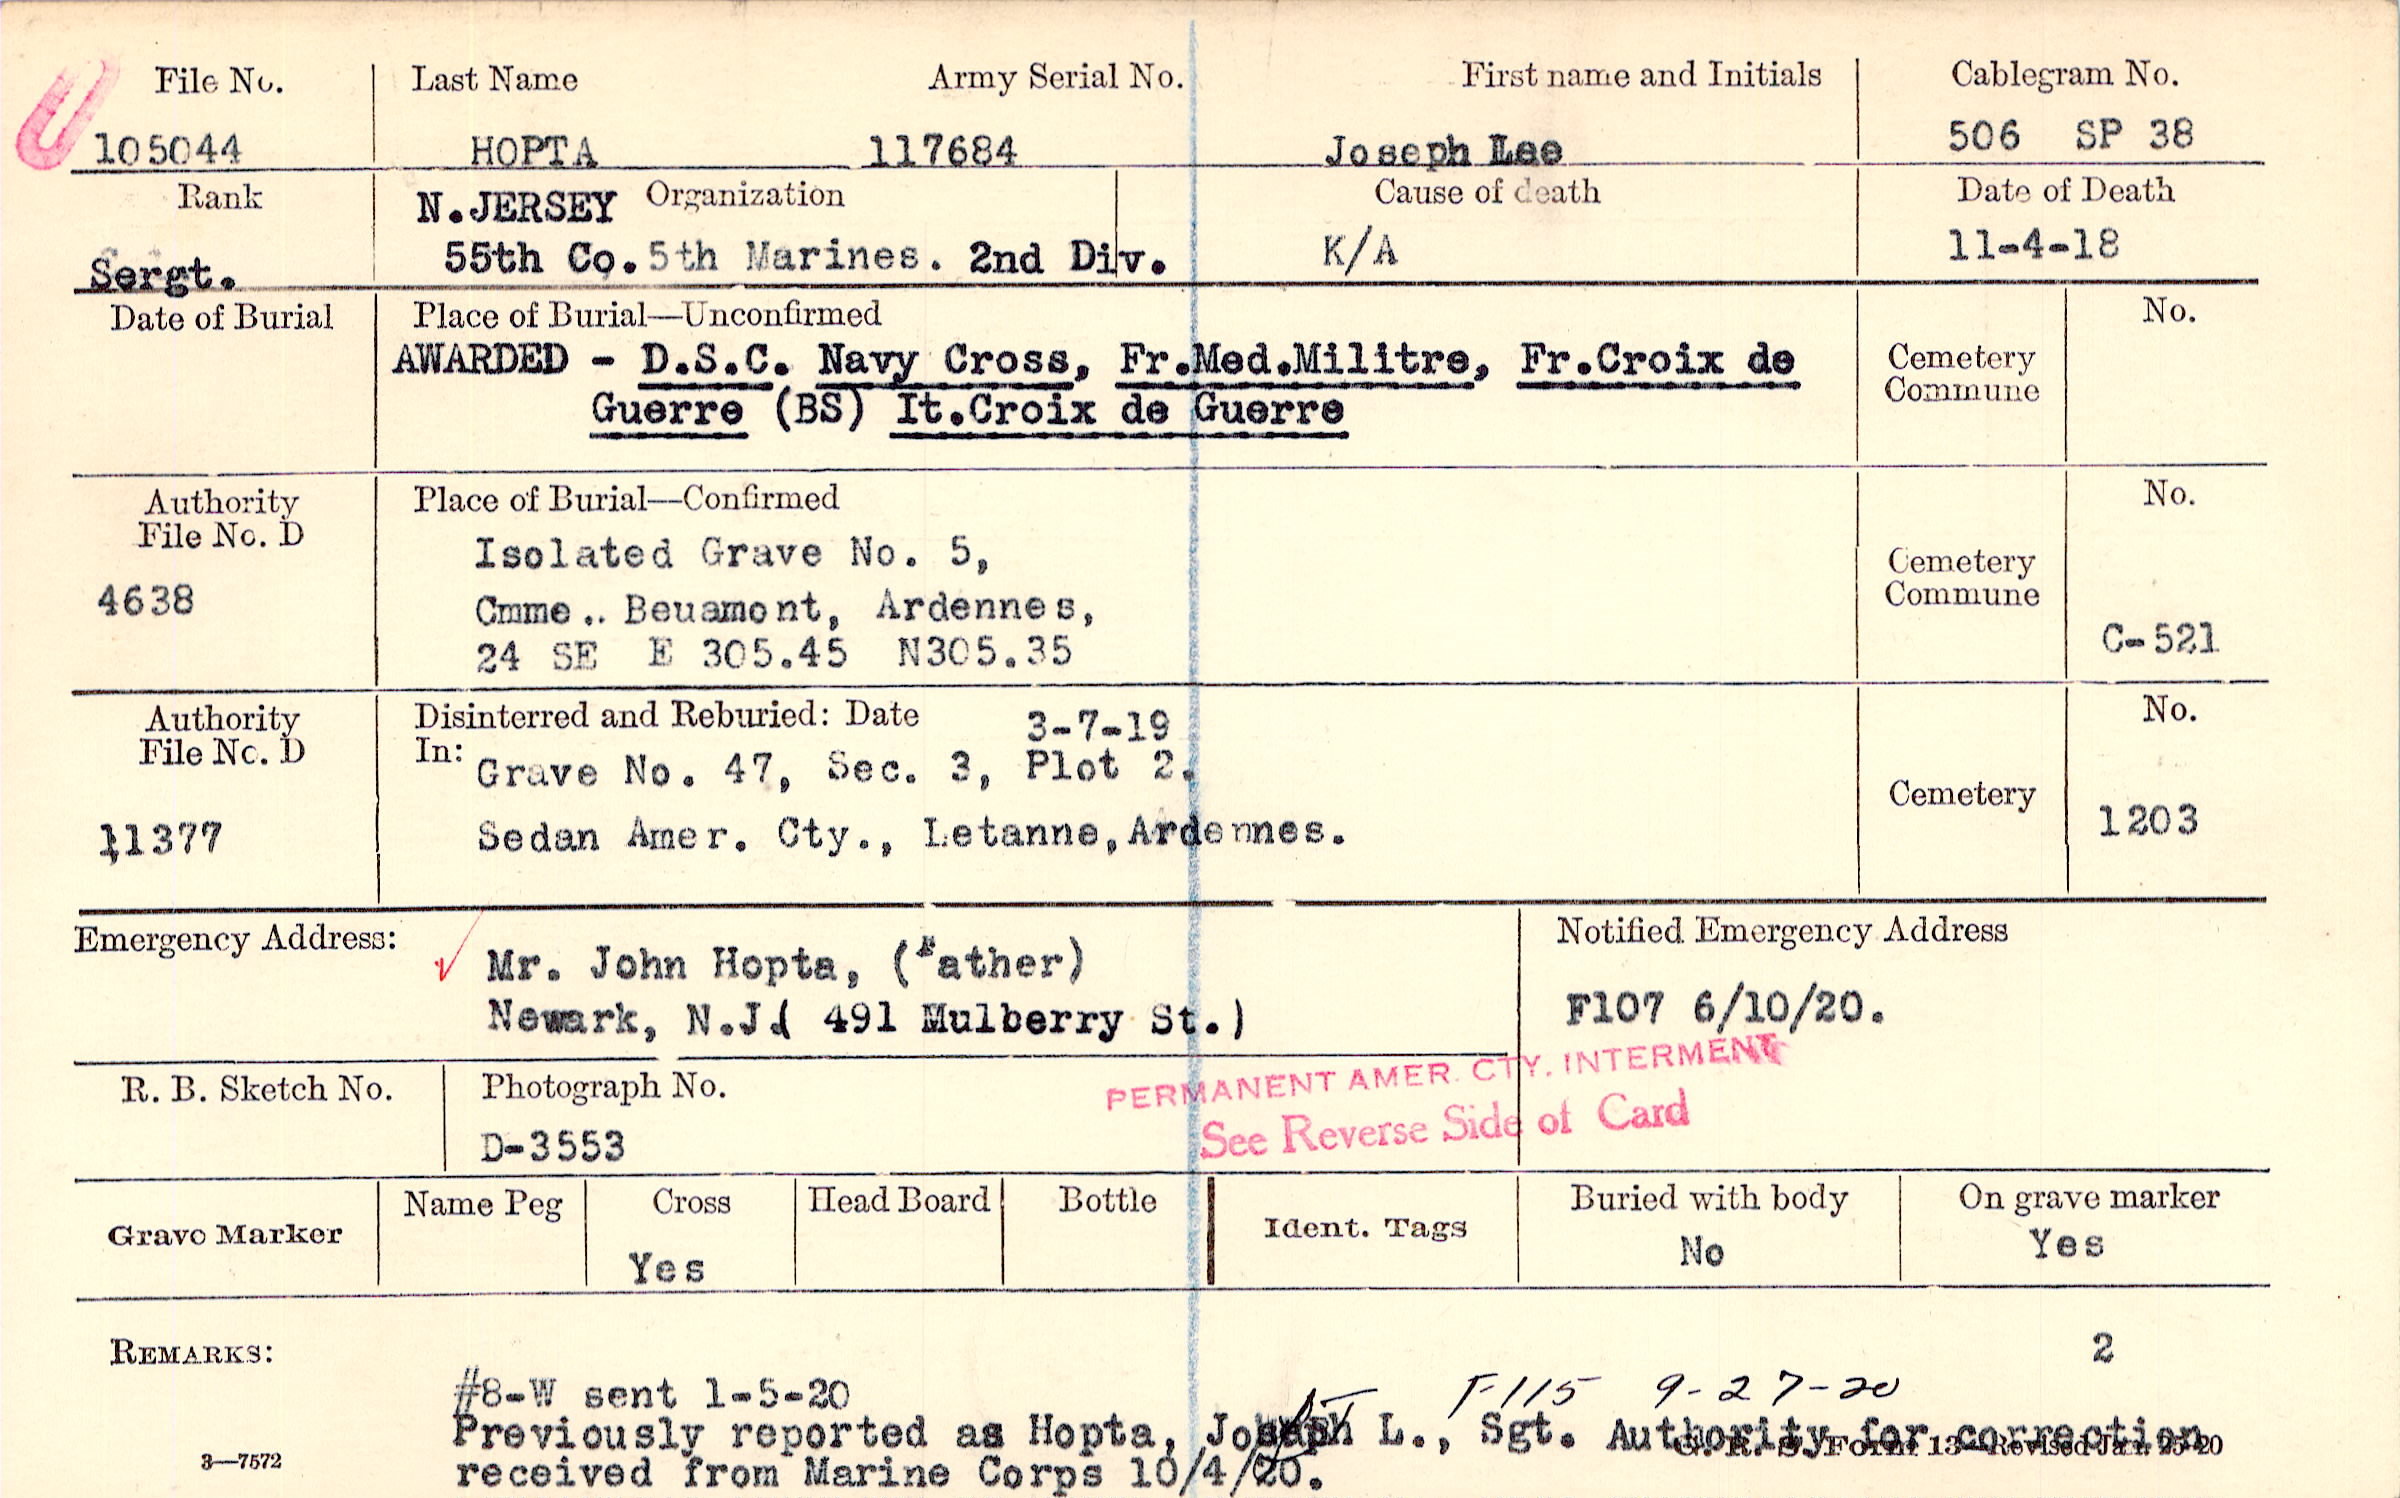 File No. Last Name Army Serial No. First name and Initials Cablegram No.
105044 HOPTA 117684 Joseph Lee 506 SP 38
Rank N.JERSEY Organization Cause of death Date of Death
Sergt. 55th Co. 5th Marines. 2nd Div. K/A 11-4-18
Date of Burial Place of Burial—Unconfirmed No.
AWARDED - D.S.C. Navy Cross, Fr.Med.Militre, Fr.Croix de
Guerre (BS) It.Croix de Guerre
Cemetery
Commune
Authority Place of Burial—Confirmed No.
File No. D
4638
Isolated Grave No. 5,
Cmme.. Beuamont, Ardennes,
24 SE E 305.45 N305.35
Cemetery
Commune
C-521
Authority Disinterred and Reburied: Date 3-7-19 No.
File No. D In: Grave No. 47, Sec. 3, Plot 2.
11377 Sedan Amer. Cty., Letanne, Ardennes. Cemetery 1203
Emergency Address: Notified Emergency Address
Mr. John Hopta, (Father)
Newark, N.J.( 491 Mulberry St.) F107 6/10/20.
PERMANENT AMER. CTY. INTERMENT
See Reverse Side of Card
R. B. Sketch No. Photograph No.
D-3553
Grave Marker Name Peg Cross Head Board Bottle Ident. Tags Buried with body On grave marker
Yes No Yes
REMARKS: 2
#8-W sent 1-5-20 F115 9-27-20
Previously reported as Hopta, Joseph L., Sgt. Authority for correction
received from Marine Corps 10/4/20.
3—7572 G. R. S. Form 13—Revised Jan. 25-20